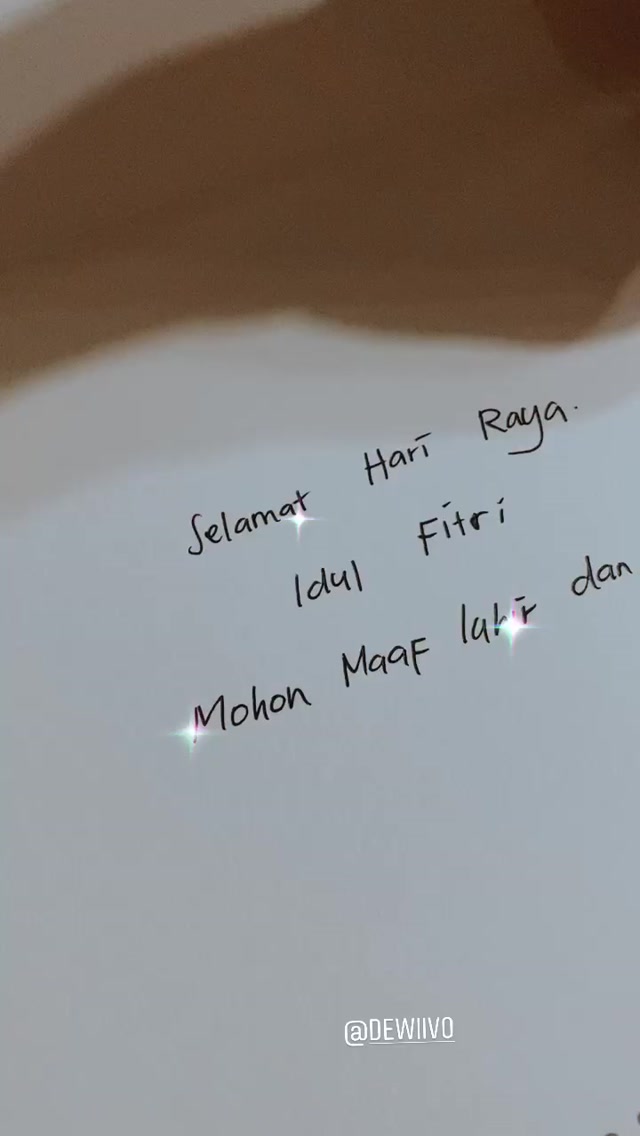 Selamat Hari Raya.
Idul Fitri
Mohon Maaf lahir dan
@DEWIIVO